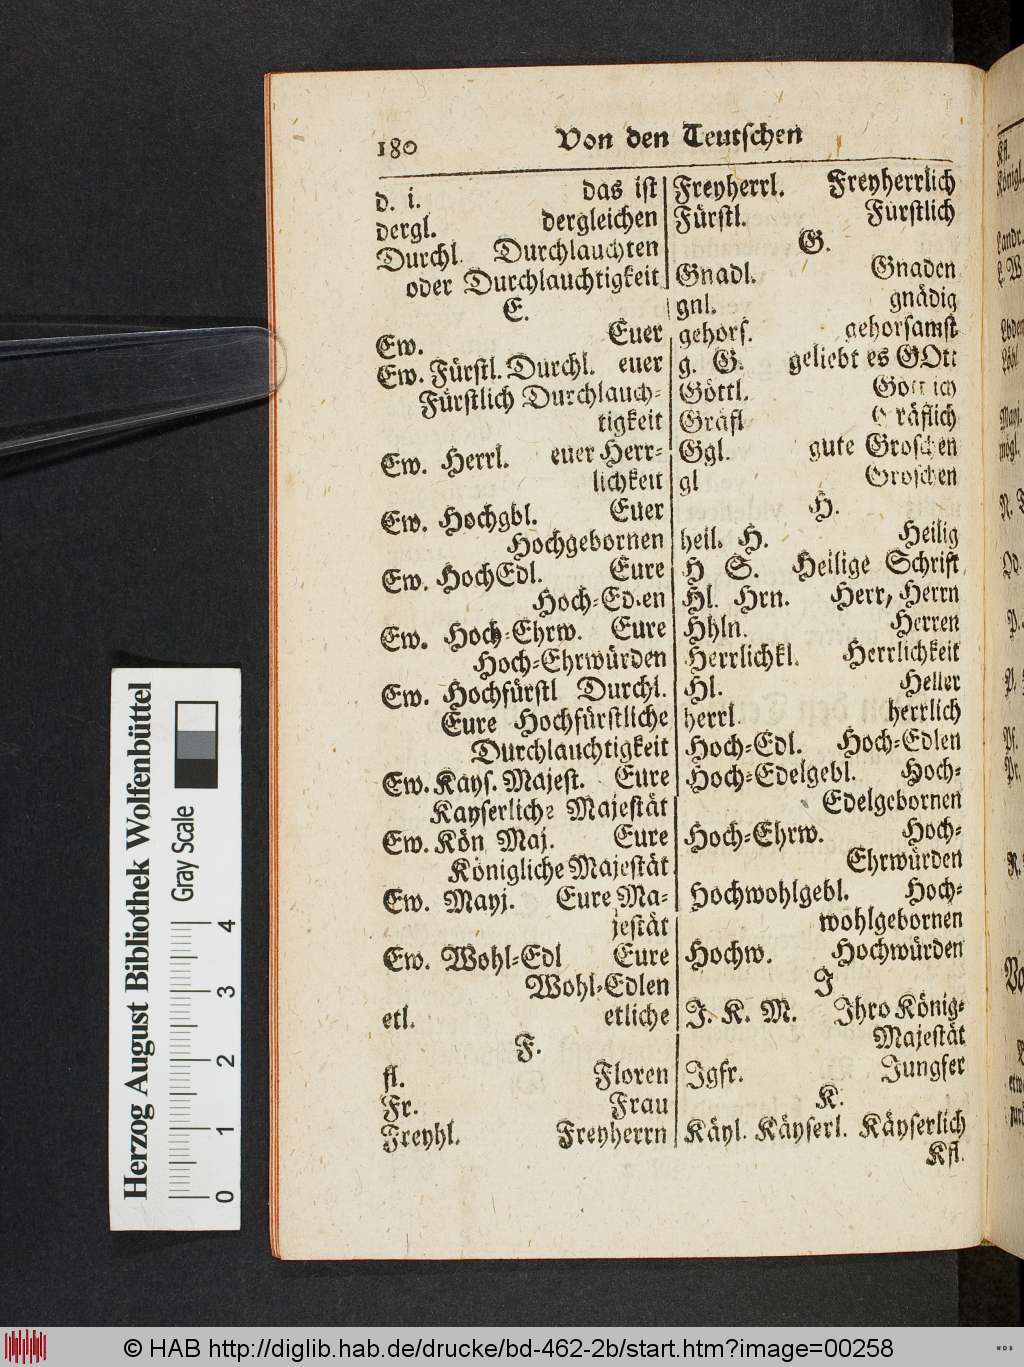 180 Von den Teutschen
d. i. das ist
dergl. dergleichen
Durchl. Durchlauchten
oder Durchlauchtigkeit
E.
Ew. Euer
Ew. Fürstl. Durchl. euer
Fürstlich Durchlauch-
tigkeit
Ew. Herrl. euer Herr-
lichkeit
Ew. Hochgbl. Euer
Hochgebornen
Ew. HochEdl. Eure
Hoch-Edlen
Ew. Hoch-Ehrw. Eure
Hoch-Ehrwürden
Ew. Hochfürstl Durchl.
Eure Hochfürstliche
Durchlauchtigkeit
Ew. Kays. Majest. Eure
Kayserliche Majestät
Ew. Kön Maj. Eure
Königliche Majestät
Ew. Mayj. Eure Ma-
jestät
Ew. Wohl-Edl Eure
Wohl-Edlen
etl. etliche
F.
fl. Floren
Fr. Frau
Freyhl. Freyherrn
Freyherrl. Freyherrlich
Fürstl. Fürstlich
G.
Gnadl. Gnaden
gnl. gnädig
gehors. gehorsamst
g. G. geliebt es GOtt
Göttl. Göttlich
Gräfl Gräflich
Ggl. gute Groschen
gl Groschen
H.
heil. H. Heilig
H S. Heilige Schrift
Hl. Hrn. Herr, Herrn
Hhln. Herren
Herrlichkl. Herrlichkeit
Hl. Heller
herrl. herrlich
Hoch-Edl. Hoch-Edlen
Hoch-Edelgebl. Hoch-
Edelgebornen
Hoch-Ehrw. Hoch-
Ehrwürden
Hochwohlgebl. Hoch-
wohlgebornen
Hochw. Hochwürden
J
J. K. M. Jhro König-
Majestät
Jgfr. Jungfer
K.
Käyl. Käyserl. Käyserlich
Kfl.
Herzog August Bibliothek Wolfenbüttel
Gray Scale
0 1 2 3 4
© HAB http://diglib.hab.de/drucke/bd-462-2b/start.htm?image=00258